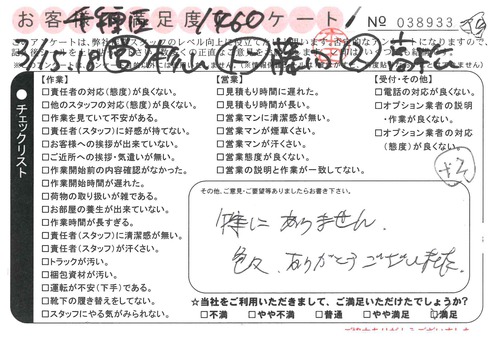 お客様満足度アンケート!
千種区 1460
№ 038933
チェックリスト
【作業】
□責任者の対応(態度)が良くない。
□他のスタッフの対応(態度)が良くない。
□作業を見ていて不安がある。
□責任者(スタッフ)に好感が持てない。
□お客様への挨拶が出来ていない。
□ご近所への挨拶・気遣いが無い。
□作業開始前の内容確認がなかった。
□作業開始時間が遅れた。
□荷物の取り扱いが雑である。
□お部屋の養生が出来ていない。
□作業時間が長すぎる。
□責任者(スタッフ)に清潔感が無い。
□責任者(スタッフ)が汗くさい。
□トラックが汚い。
□梱包資材が汚い。
□運転が不安(下手)である。
□靴下の履き替えをしてない。
□スタッフにやる気がみられない。
【営業】
□見積もり時間に遅れた。
□見積もり時間が長い。
□営業マンに清潔感が無い。
□営業マンが煙草くさい。
□営業マンが汗くさい。
□営業態度が良くない。
□営業の説明と作業が一致してない。
【受付・その他】
□電話の対応が良くない。
□オプション業者の説明・作業が良くない。
□オプション業者の対応(態度)が良くない。
その他、ご意見・ご要望等ありましたらお書き下さい。
特にありません。
色々、ありがとうございました。
☆当社をご利用いただきまして、ご満足いただけたでしょうか?
□不満 □やや不満 □普通 □やや満足 □満足